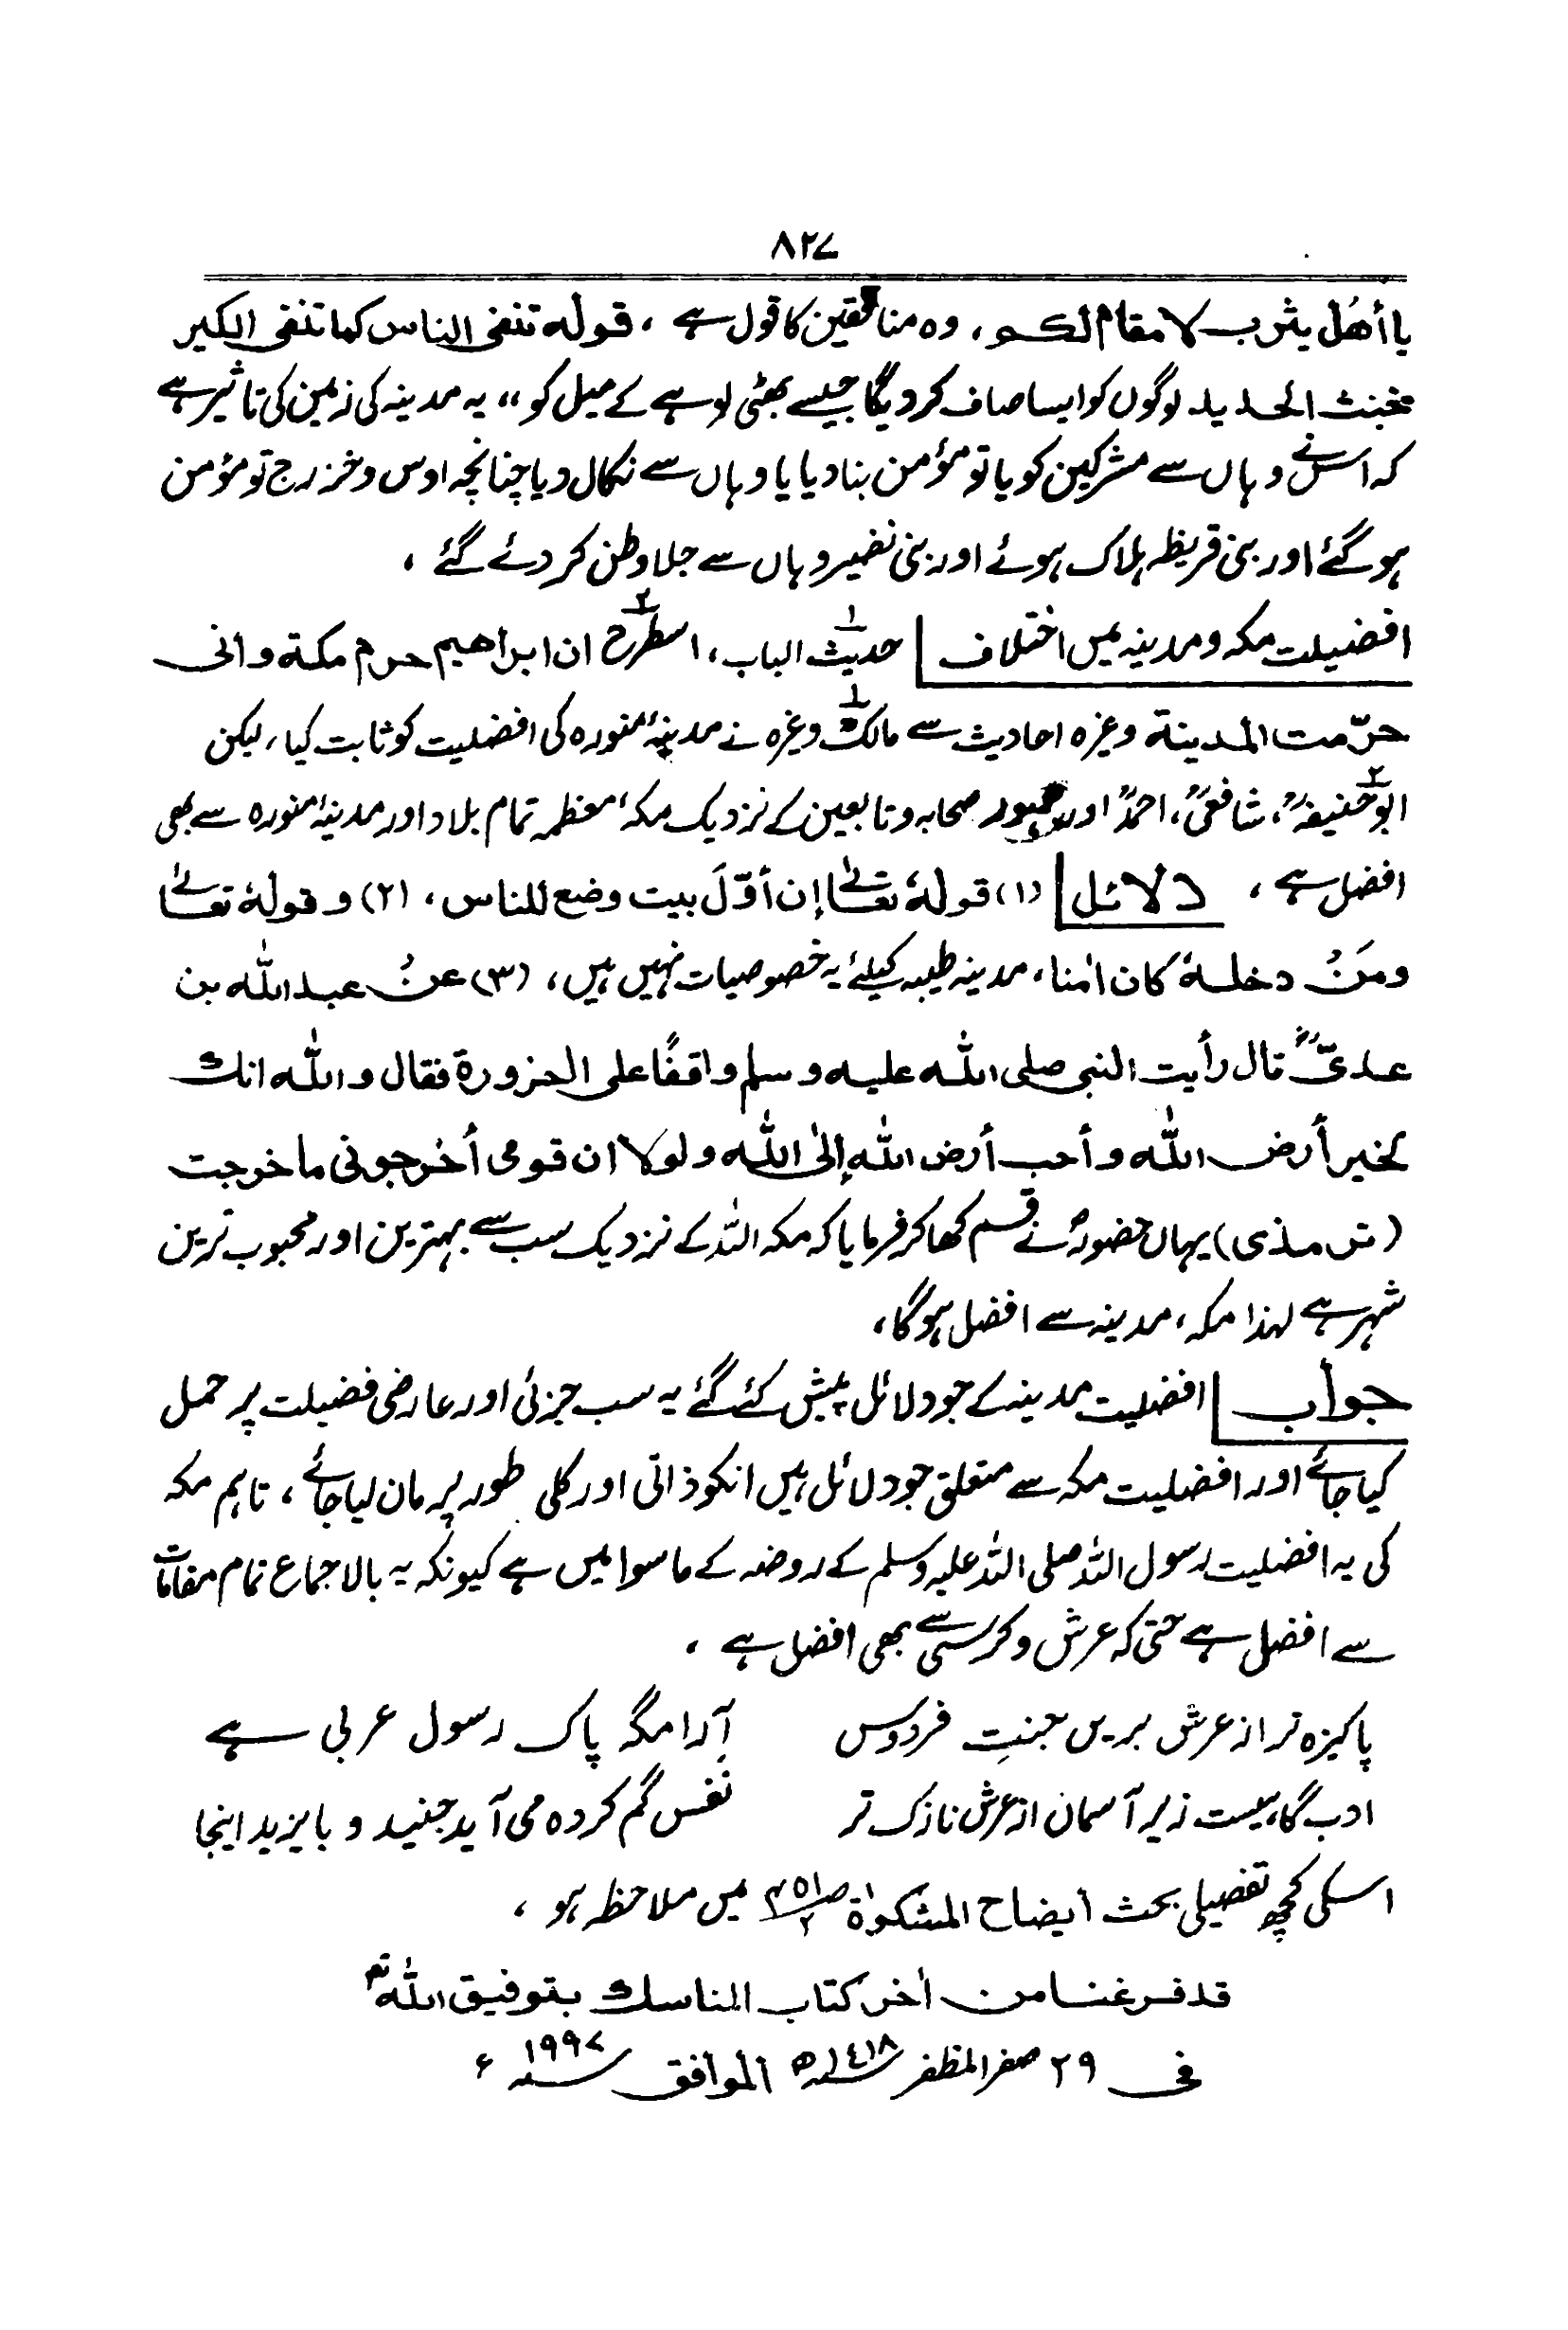 ۸۲۷
یا أھل یثرب لا مقام لکم، وہ منافقین کا قول ہے ، قولہ تنفی الناس کما تنفی الکیر
خبث الحدید لوگوں کو ایسا صاف کر دیگا جیسے بھٹی لوہے کے میل کو ،، یہ مدینہ کی زمین کی تاثیر ہے
کہ اس نے وہاں سے مشرکین کو یا تو مؤمن بنا دیا یا وہاں سے نکال دیا چنانچہ اوس و خزرج تو مؤمن
ہو گئے اور بنی قریظہ ہلاک ہوئے اور بنی نضیر وہاں سے جلا وطن کر دئے گئے ،
افضیلت مکہ و مدینہ میں اختلاف | ۱ حدیث الباب، ۲ اسطرح ان ابراھیم حرم مکۃ وانی
حرّمت المدینۃ وغیرہ احادیث سے ۱ مالکؒ وغیرہ نے مدینۂ منورہ کی افضلیت کو ثابت کیا، لیکن
۲ ابوحنیفہؒ، شافعیؒ، احمدؒ اور جمہور صحابہ و تابعین کے نزدیک مکۂ معظمہ تمام بلاد اور مدینۂ منورہ سے بھی
افضل ہے ، دلائل | (۱) قولہٗ تعالےٰ إن أوّلَ بیت وضع للناس، (۲) و قولہٗ تعالےٰ
ومَنْ دخلہٗ کان اٰمنا، مدینہ طیبہ کیلئے یہ خصوصیات نہیں ہیں، (۳) عنْ عبداللّٰہ بن
عدیؓ قال رأیت النبی صلی اللّٰہ علیہ وسلم واقفًا علی الحزورۃ فقال واللّٰہ انک
لخیر أرض اللّٰہ وأحب أرض اللّٰہ إلیٰ اللّٰہ ولولا ان قومی أخرجونی ما خرجت
(ترمذی) یہاں حضورؐ نے قسم کھا کر فرمایا کہ مکہ اللہ کے نزدیک سب سے بہترین اور محبوب ترین
شہر ہے لہذا مکہ، مدینہ سے افضل ہوگا،
جواب | افضلیت مدینہ کے جو دلائل پیش کئے گئے یہ سب جزئی اور عارضی فضیلت پر حمل
کیا جائے اور افضلیت مکہ سے متعلق جو دلائل ہیں انکو ذاتی اور کلی طور پر مان لیا جائے ، تاہم مکہ
کی یہ افضلیت رسول اللہ صلی اللہ علیہ وسلم کے روضہ کے ماسوا میں ہے کیونکہ یہ بالاجماع تمام مقامات
سے افضل ہے حتی کہ عرش و کرسی سے بھی افضل ہے ،
پاکیزہ تر از عرش بریں جنتِ فردوس آرامگہِ پاک رسول عربی ہے
ادب گاہیست زیر آسمان از عرش نازک تر نفس گم کردہ می آید جنید و بایزید اینجا
اسکی کچھ تفصیلی بحث ایضاح المشکوٰۃ میں ملاحظہ ہو ،
قد فرغنا من اٰخر کتاب المناسک بتوفیق اللّٰہ تم
فی ۲۹ صفر المظفر سنہ ۱٤۱۸ھ الموافق سنہ ۱۹۹۷ ء